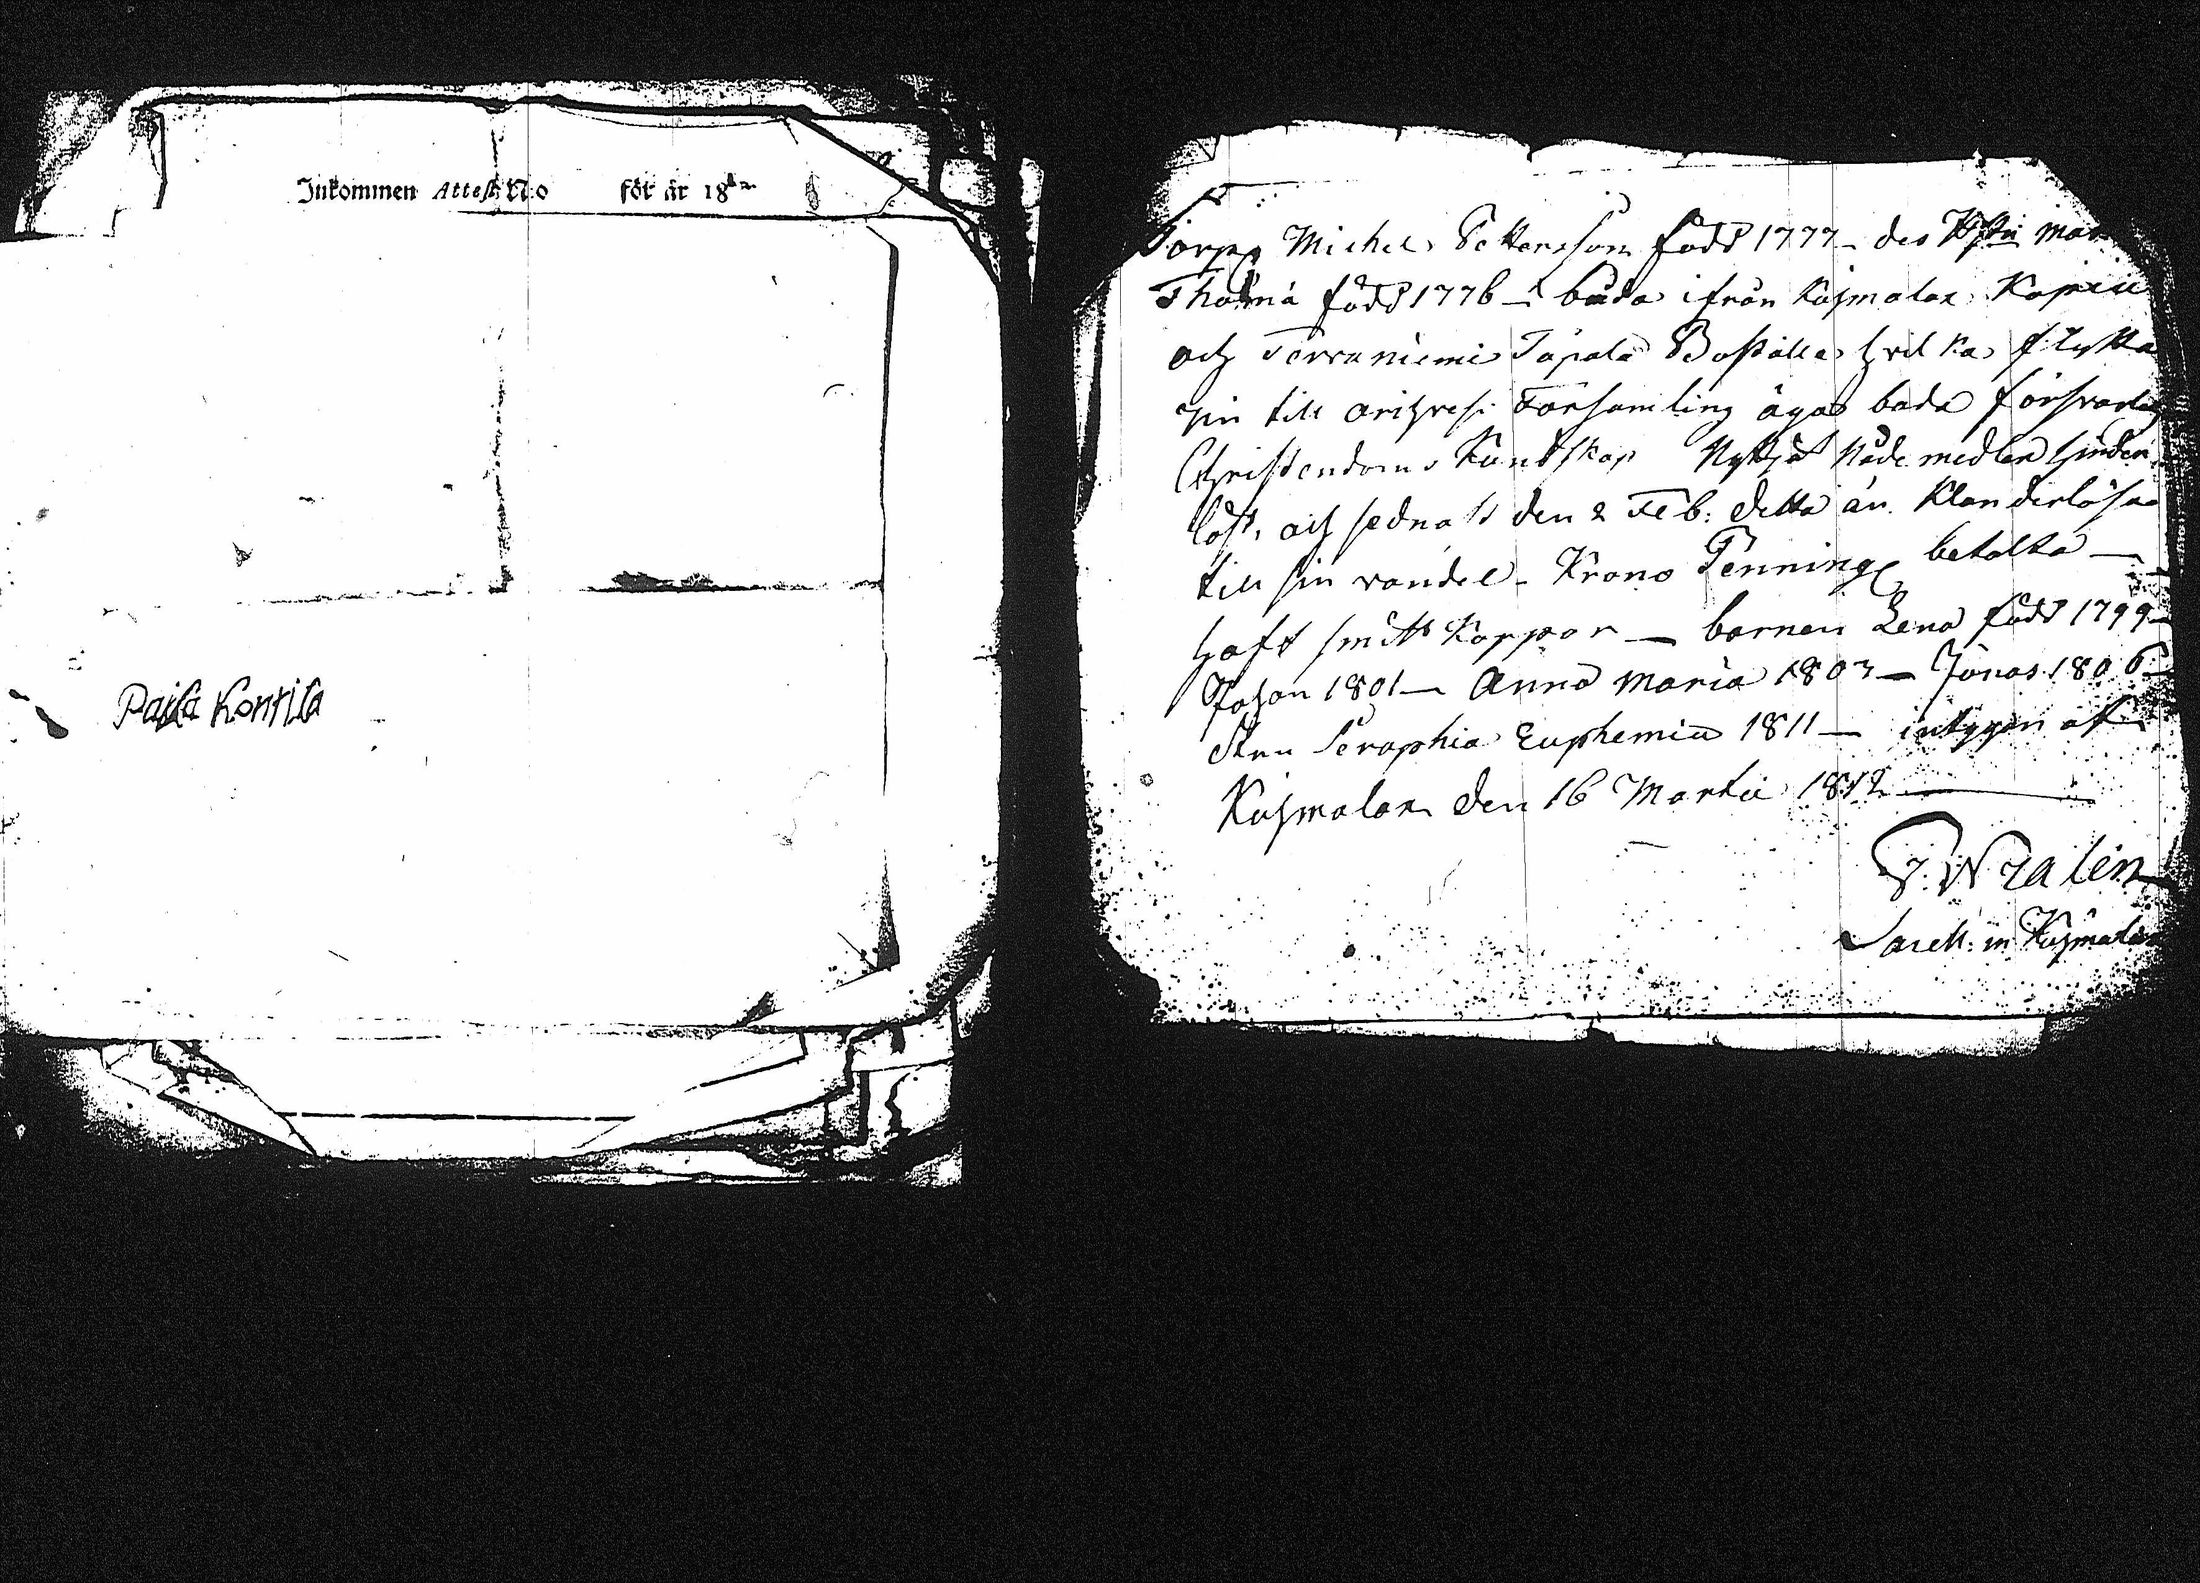 Inkommen Attest N:o för år 18
Paila Kontila
Torp Michel Pettersson född 1777 – des Hustru
Thoma född 1776 – båda ifrån Kuhmalax
och Terraniemi Boställe hvilka flytta
till Orihvesi Församling äga båda försvarlig
Christendoms Kundskap Nyttja Nåde medlen hinder
löst, och sednast den 2 Feb: detta år. Klanderlösa
till sin vandel – Krono Penning betalta –
haft små Koppor – barnen Lena född 1799 –
Johan 1801 – Anna Maria 1803 – Jonas 1806 –
Seraphia Euphemia 1811 – intygar
Kuhmalax den 16 Martii 1812
in Kuhmalax